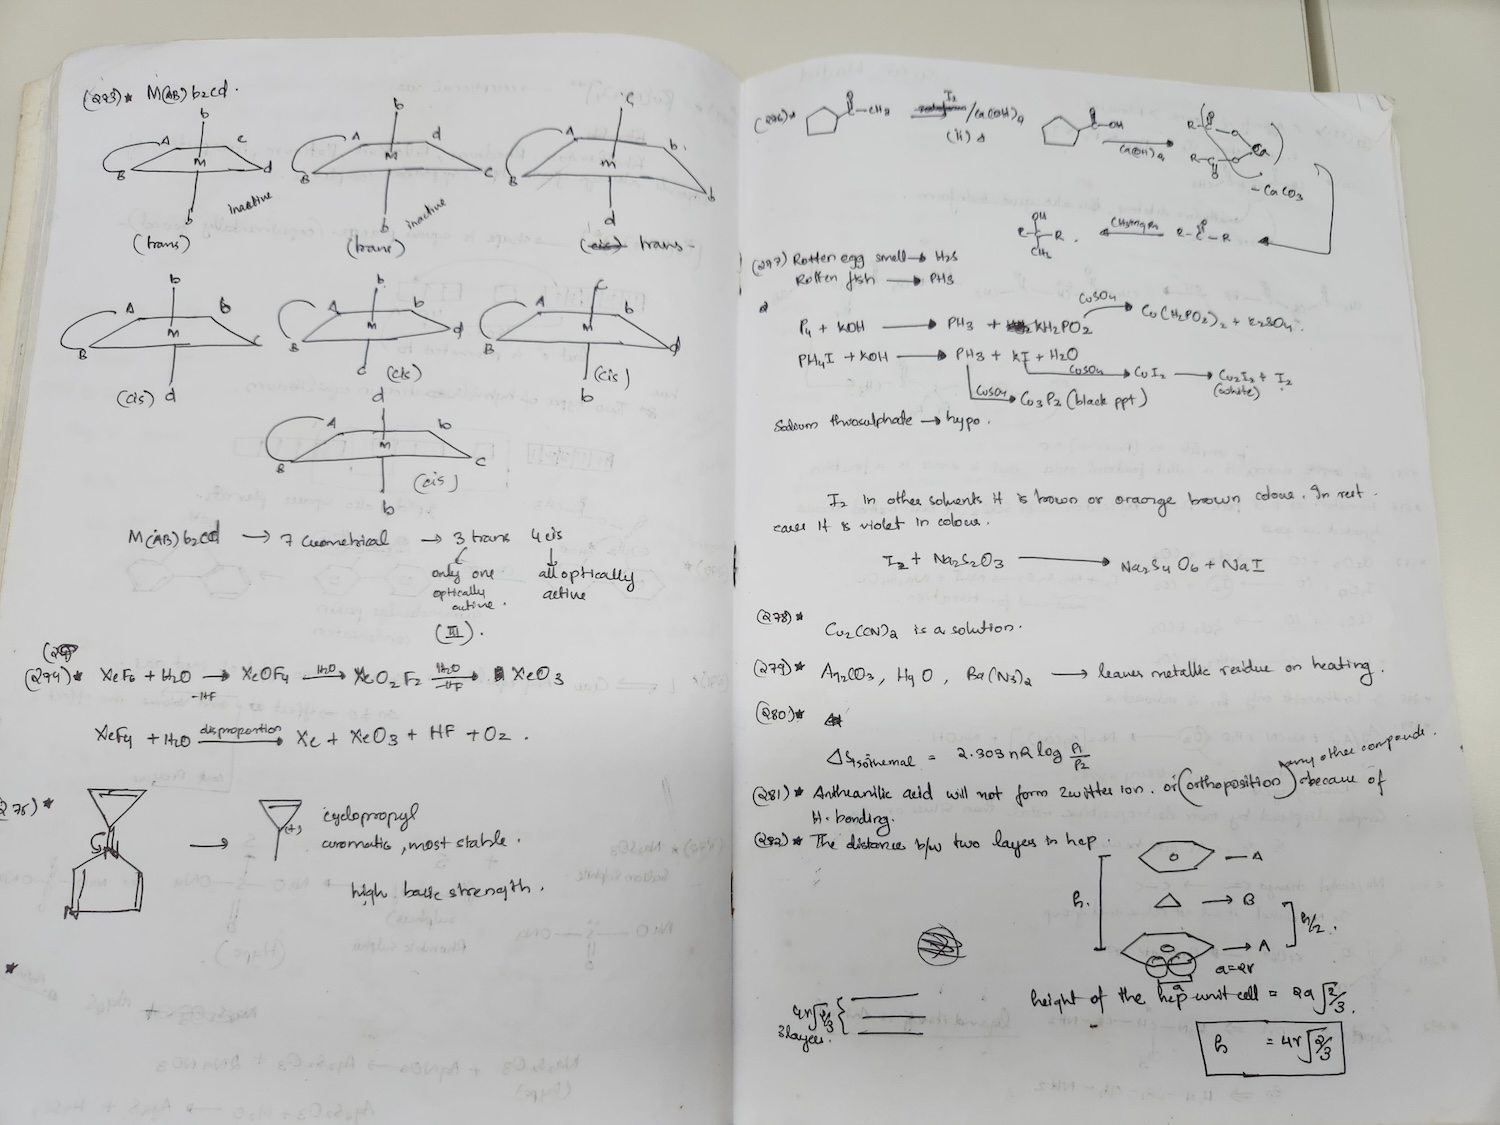 (273)* M(AB) b2cd.
b A c B M d b inactive (trans)
b A d B M c b inactive (trans)
c A b B M b d trans
b A b B M c d (cis)
b A b B M d c (cis)
c A b B M d b (cis)
d A b B M c b (cis)
M(AB)b2cd → 7 Geometrical → 3 trans 4 cis
only one optically active.
all optically active
(III).
(274)* XeF6 + H2O → -HF XeOF4 H2O → XeO2F2 H2O → -HF XeO3
XeF4 + H2O disproportion → Xe + XeO3 + HF + O2.
275)* → (+) cyclopropyl
aromatic, most stable.
high basic strength.
(276)* C O -CH3 I2 /Ca(OH)2 (ii) Δ C O -OH Ca(OH)2 → R-C-O R-C-O Ca
- CaCO3
OH R-C-R CH3 . CH3MgBr R-C-R O
(277) Rotten egg smell → H2S
Rotten fish → PH3
P4 + KOH → PH3 + KH2PO2 CuSO4 → Cu(H2PO2)2 + K2SO4.
PH4I + KOH → PH3 + KI + H2O
CuSO4 → CuI2 → Cu2I2 + I2
(white)
CuSO4 → Cu3P2 (black ppt)
Sodium thiosulphate → hypo.
I2 in other solvents it is brown or oraorge brown colour. In rest
cases it is violet in colour.
I2 + Na2S2O3 → Na2S4O6 + NaI
(278)*
Cu2(CN)2 is a solution.
(279)* Ag2CO3, HgO, Ba(N3)2 → leaves metallic residue on heating.
(280)*
ΔSisothermal = 2.303nR log P1/P2
(281)* Anthranilic acid will not form zwitter ion. or (orthoposition) any other compounds. because of
H-bonding.
(282)* The distance b/w two layers in hcp.
→ A
h. → B
h/2.
→ A
a=2r
a
height of the hcp unit cell = 2a√2/3.
4r√2/3
3 layers.
h = 4r√2/3